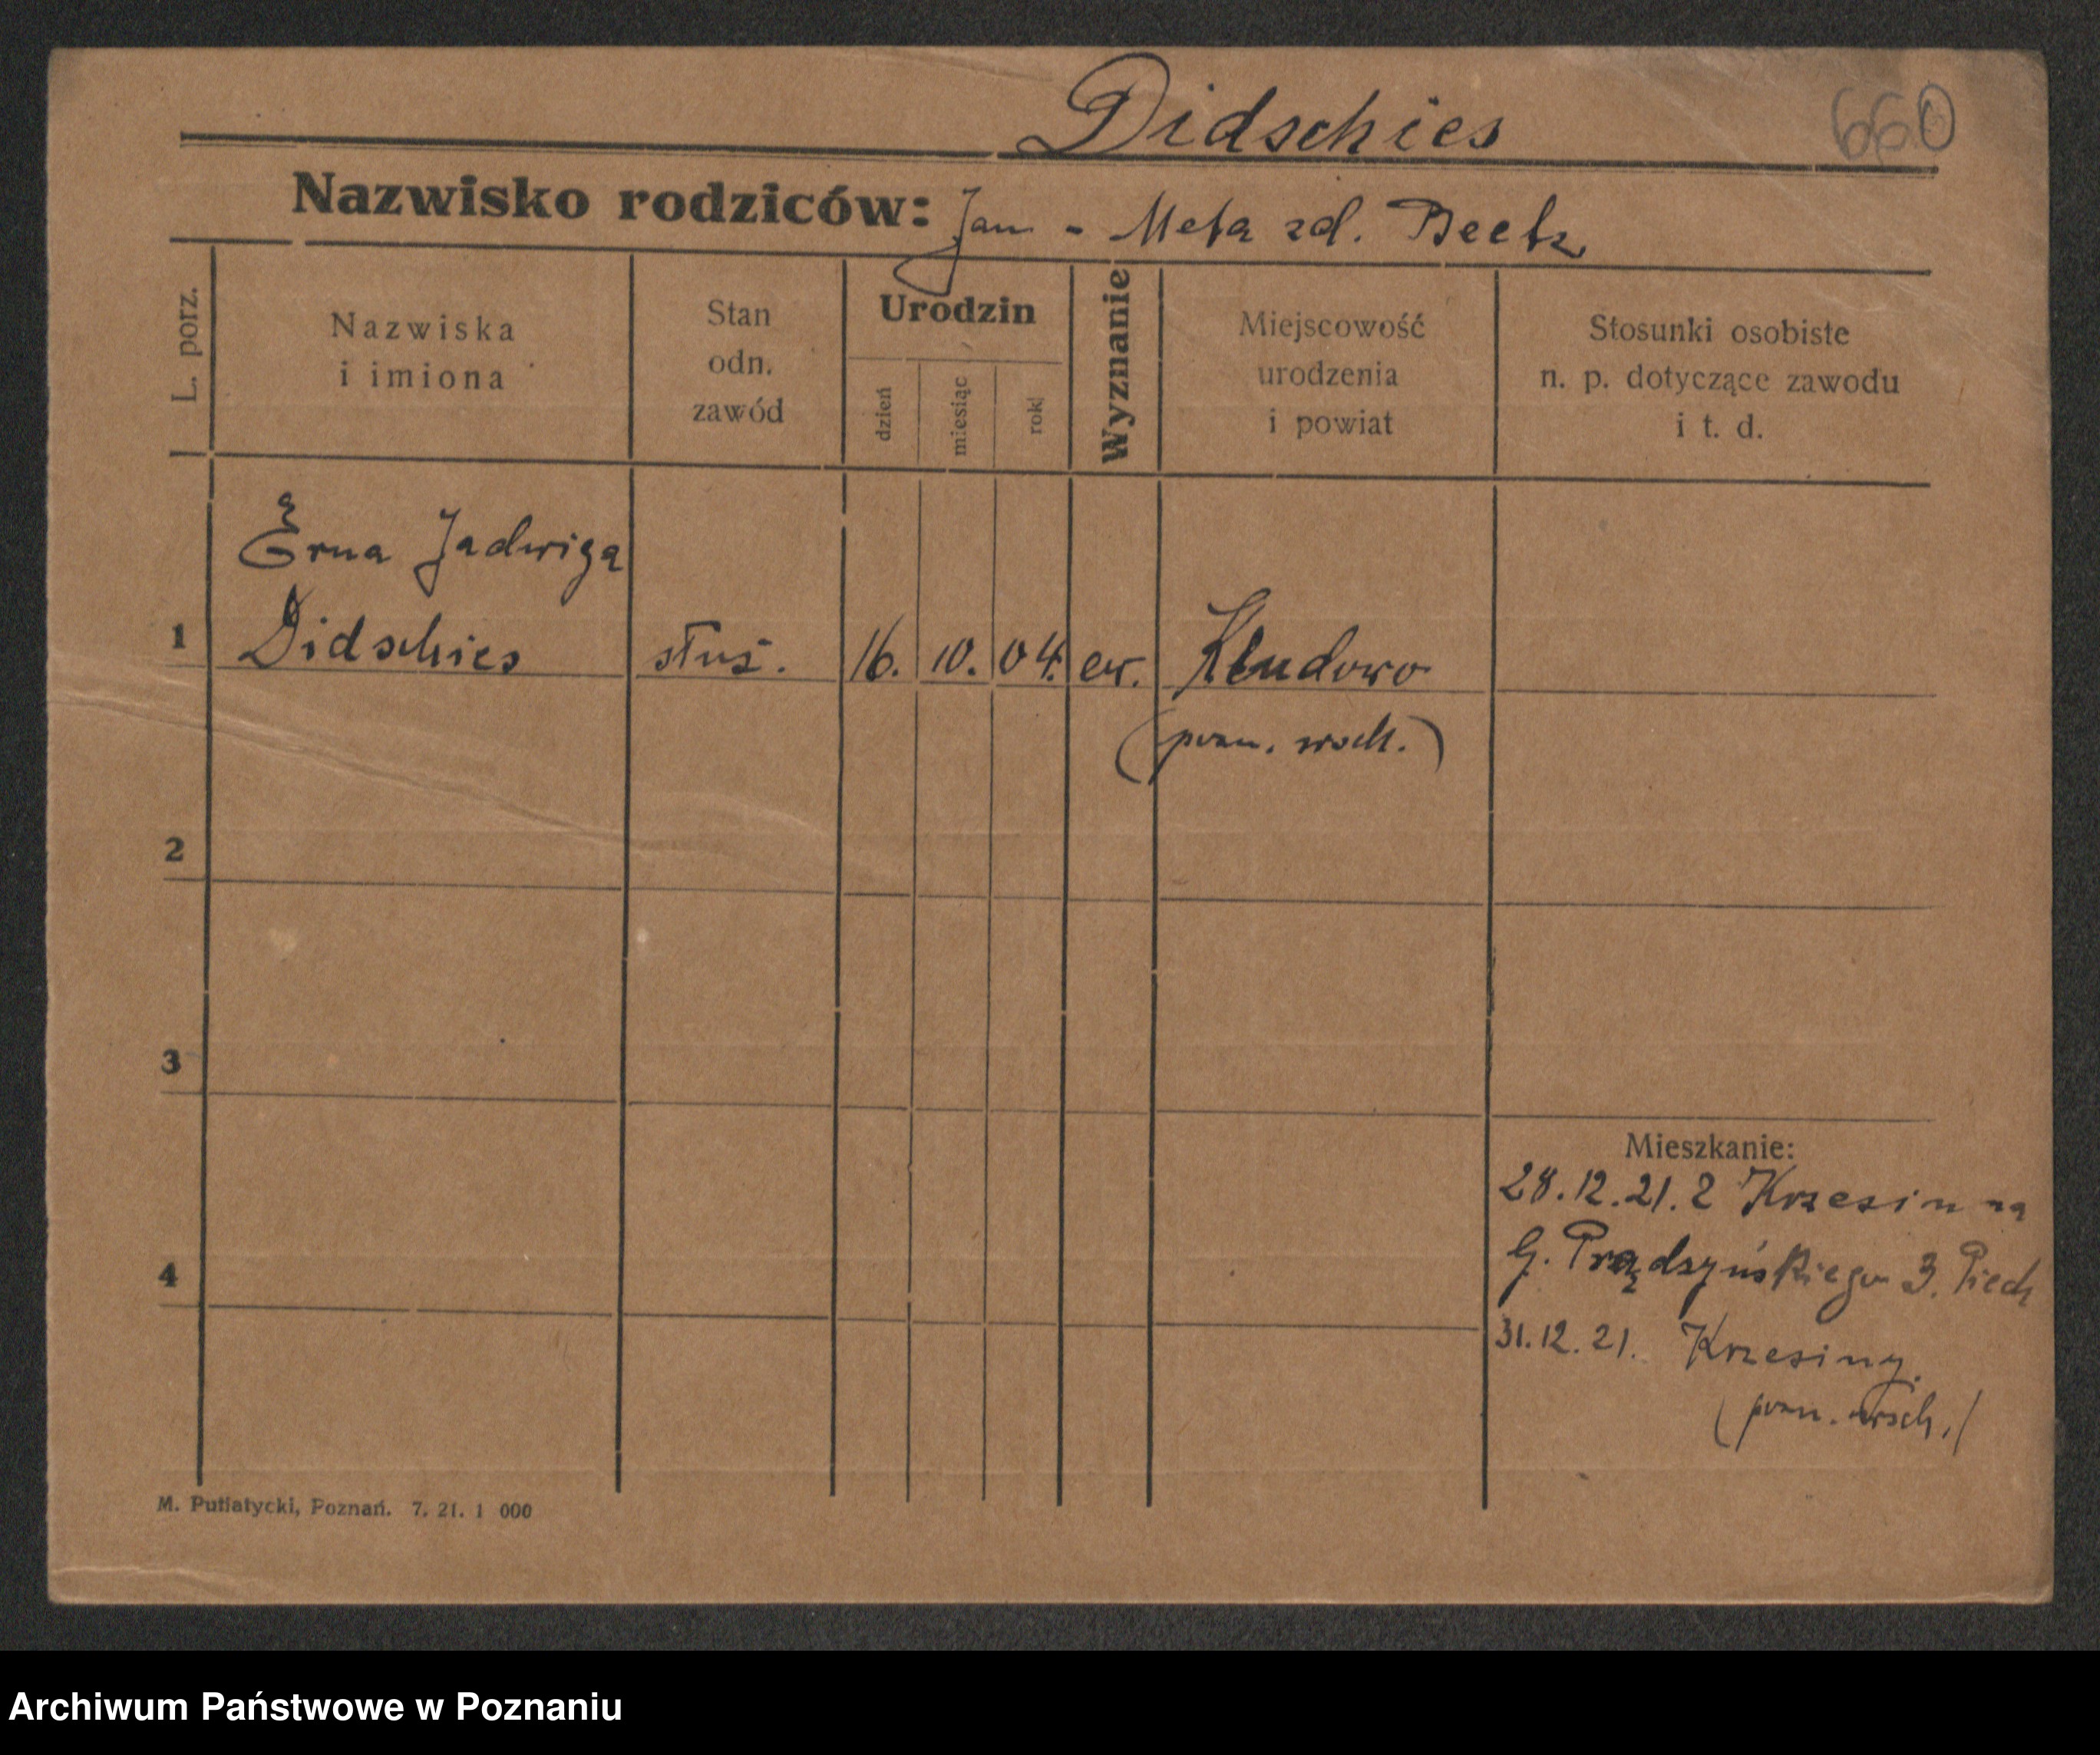 Didschies
660
Nazwisko rodziców: Jan - Meta zd. Beetz
L. porz.
Nazwiska
i imiona
Stan
odn.
zawód
Urodzin
dzień
miesiąc
rok
Wyznanie
Miejscowość
urodzenia
i powiat
Stosunki osobiste
n. p. dotyczące zawodu
i t. d.
Erna Jadwiga
1 Didschies służ. 16. 10. 04. ew.
(pozn. wsch.)
2
3
4
Mieszkanie:
28.12.21. z Krzesin na
G. Prądzyńskiego 3. Piech
31.12.21. Krzesiny
(pozn. wsch.)
M. Putiatycki, Poznań. 7. 21. 1 000
Archiwum Państwowe w Poznaniu